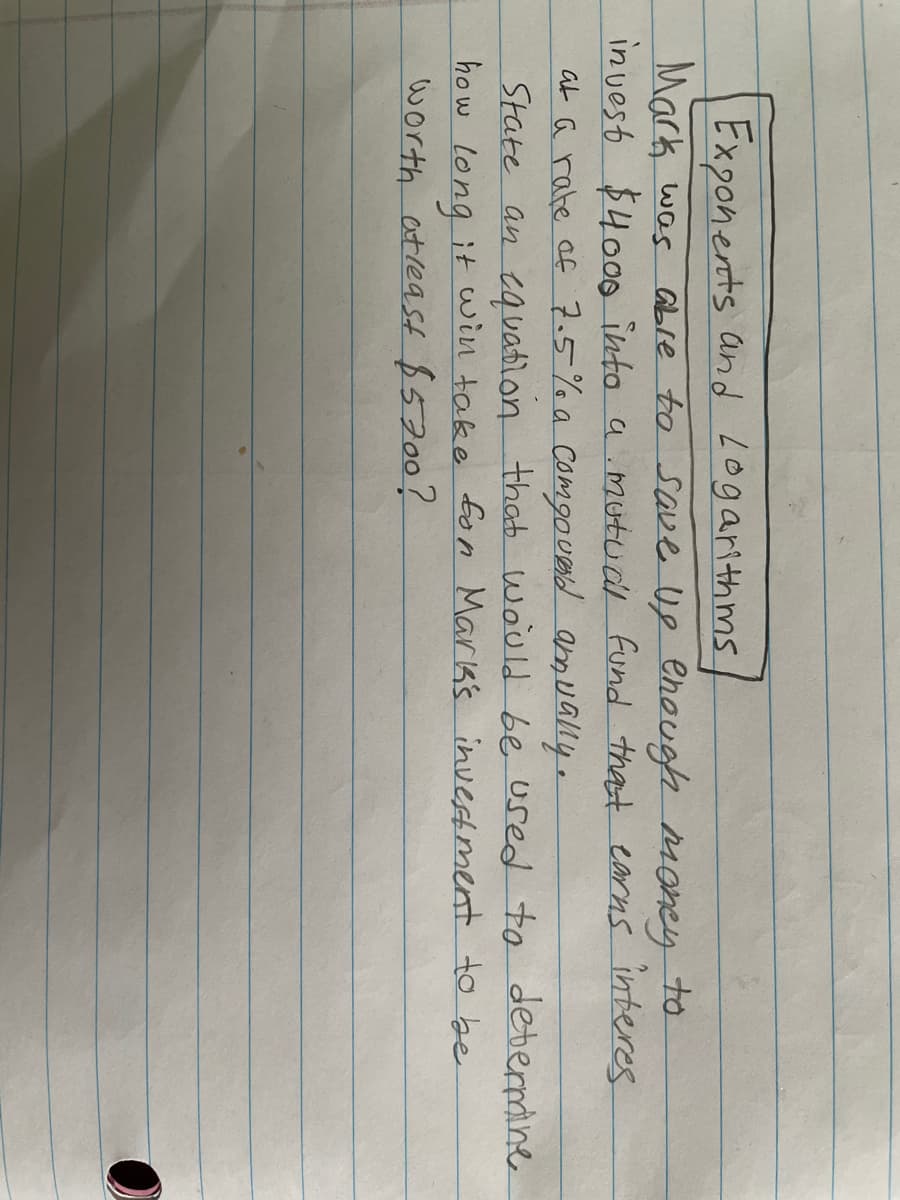 Exponents and Logarithms
Mark was able to save up enough money to
invest $4000 into a mutual fund that earns interes
at a rate of 7.5% a compound annually.
State an equation that would be used to determine
how long it will take for Mark's investment to be
worth atleast $5700?